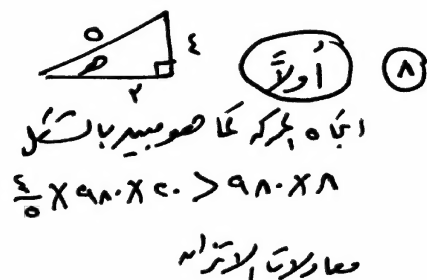 ٨ أولاً
٥ ٤ هـ ٢
اتجاه الحركة كما هو مبين بالشكل
٤/٥ × ٩٨٠ × ٢٠ > ٩٨٠ × ٨
معادلات الاتزان